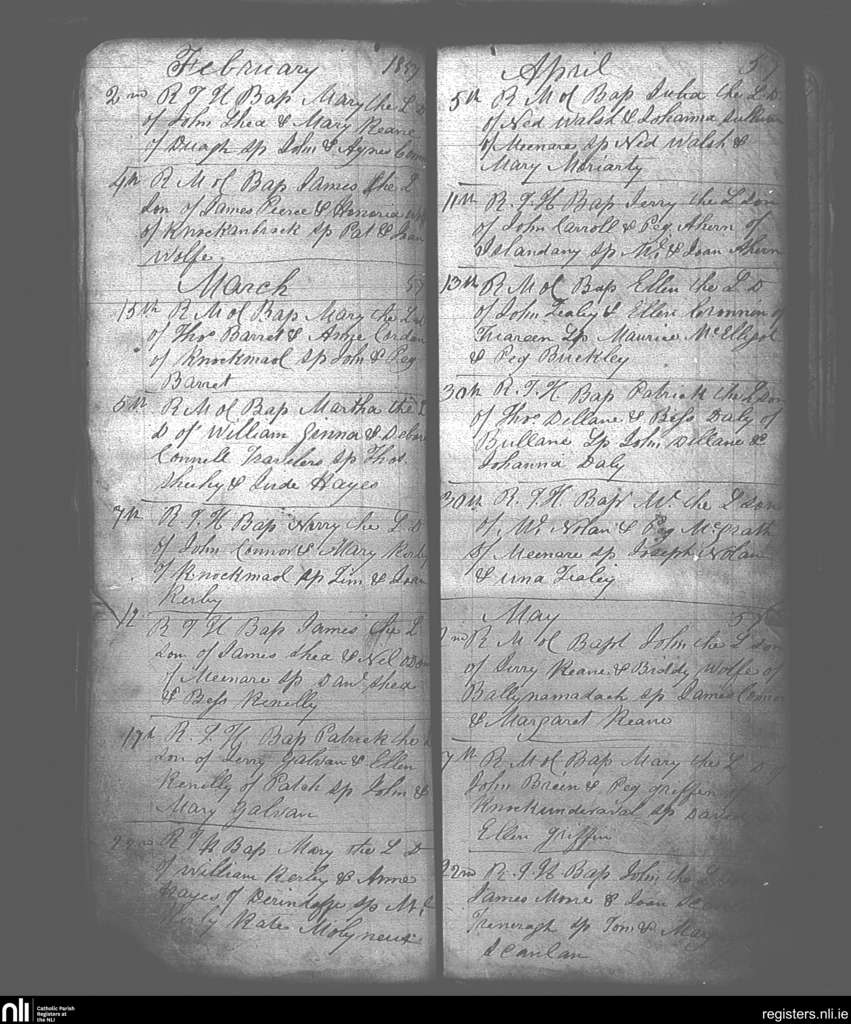 February 1857
2nd R T H Bap Mary the L D
of John Shea & Mary Keane
of Duagh Sp John & Agnes
4th R M ol Bap James the L
Son of James Pierce & Honoria
of Knockanbrack Sp Pat & Joan
Wolfe.
March 57
15th R M ol Bap Mary the L D
of Thos Barret &
of Knockmaol Sp John & Peg
Barret
5th R M ol Bap Martha the L
D of William Ginna &
Connell Travelers Sp Thos
Sheehy & Jude Hayes
7th R T H Bap Norry the L D
of John Connor & Mary
of Knockmaol Sp Tim & Joan
Kerby
12 R T H Bap James the L
Son of James Shea & Nel
of Meenare Sp Danl Shea
& Bess Kenelly
17th R T H Bap Patrick the L
Son of Jerry Galvan & Ellen
Kenelly of Patch Sp John &
Mary Galvan
22nd R T H Bap Mary the L D
of William Kerby & Anne
Hayes of Sp
Kerby Kate Molyneux
April 57
5th R M ol Bap Julia the L D
of Ned Walsh & Johanna
of Meenare Sp Ned Walsh &
Mary Moriarty
11th R T H Bap Jerry the L Son
of John Carroll & Peg Ahern of
Islandany Sp & Joan Ahern
13th R M ol Bap Ellen the L D
of John Fealey & Ellen of
Sp Maurice McElligot
& Peg Buckley
30th R T H Bap Patrick the L Son
of Thos Dillane & Bess Daly of
Bullane Sp John Dillane &
Johanna Daly
30th R T H Bap Wm the L Son
of Wm Nolan & Peg McGrath
of Meenare Sp Joseph Nolan
& Fealey
May 57
2nd R M ol Bapt John the L Son
of Jerry Keane & Biddy Wolfe of
Ballynamadach Sp James Connor
& Margaret Keane
7th R M ol Bap Mary the L D
John Breen & Peg Griffin
Sp
Ellen Griffin
22nd R T H Bap John the L
James & Joan
Sp Tom & Mary
Scanlan
nli Catholic Parish
Registers at
the NLI
registers.nli.ie